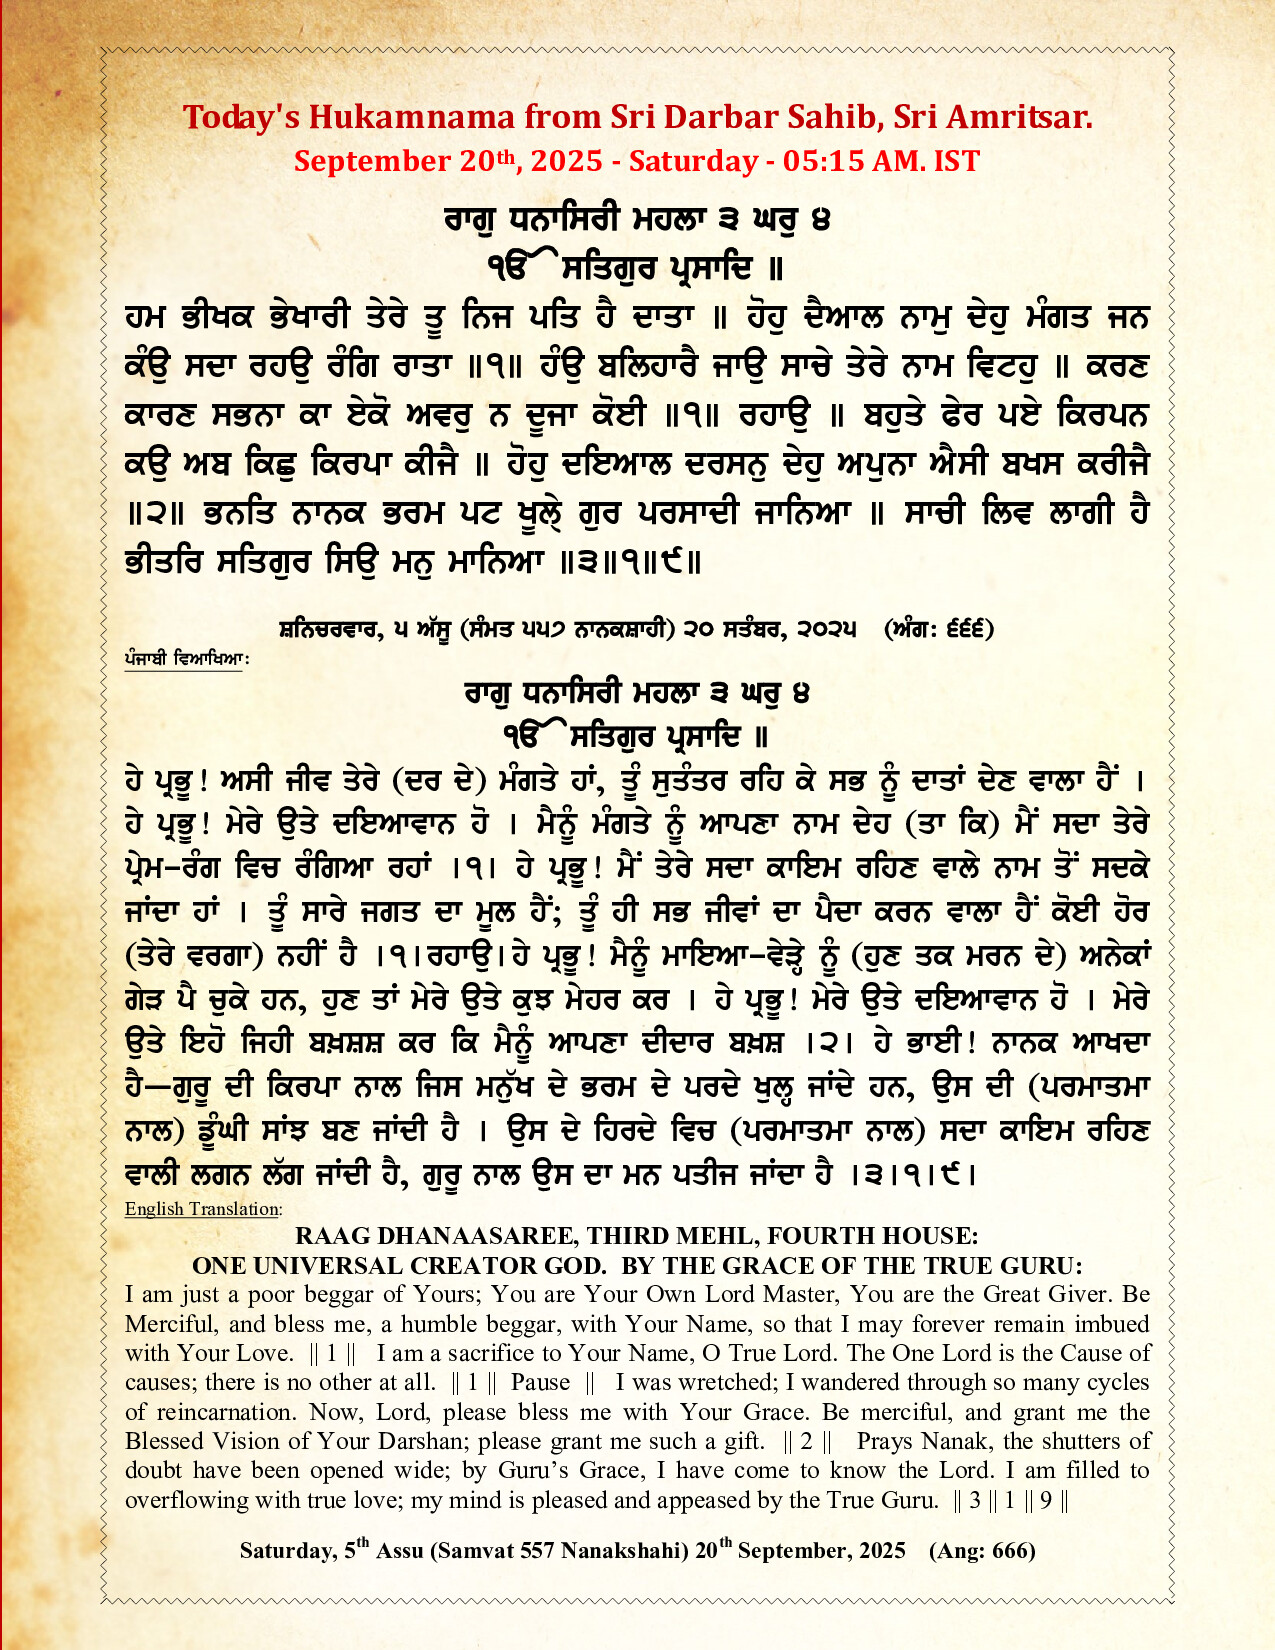 Today's Hukamnama from Sri Darbar Sahib, Sri Amritsar.
September 20th, 2025 - Saturday - 05:15 AM. IST
ਰਾਗੁ ਧਨਾਸਿਰੀ ਮਹਲਾ ੩ ਘਰੁ ੪
ੴ ਸਤਿਗੁਰ ਪ੍ਰਸਾਦਿ ॥
ਹਮ ਭੀਖਕ ਭੇਖਾਰੀ ਤੇਰੇ ਤੂ ਨਿਜ ਪਤਿ ਹੈ ਦਾਤਾ ॥ ਹੋਹੁ ਦੈਆਲ ਨਾਮੁ ਦੇਹੁ ਮੰਗਤ ਜਨ
ਕੰਉ ਸਦਾ ਰਹਉ ਰੰਗਿ ਰਾਤਾ ॥੧॥ ਹੰਉ ਬਲਿਹਾਰੈ ਜਾਉ ਸਾਚੇ ਤੇਰੇ ਨਾਮ ਵਿਟਹੁ ॥ ਕਰਣ
ਕਾਰਣ ਸਭਨਾ ਕਾ ਏਕੋ ਅਵਰੁ ਨ ਦੂਜਾ ਕੋਈ ॥੧॥ ਰਹਾਉ ॥ ਬਹੁਤੇ ਫੇਰ ਪਏ ਕਿਰਪਨ
ਕਉ ਅਬ ਕਿਛੁ ਕਿਰਪਾ ਕੀਜੈ ॥ ਹੋਹੁ ਦਇਆਲ ਦਰਸਨੁ ਦੇਹੁ ਅਪੁਨਾ ਐਸੀ ਬਖਸ ਕਰੀਜੈ
॥੨॥ ਭਨਤਿ ਨਾਨਕ ਭਰਮ ਪਟ ਖੂਲ੍ਹੇ ਗੁਰ ਪਰਸਾਦੀ ਜਾਨਿਆ ॥ ਸਾਚੀ ਲਿਵ ਲਾਗੀ ਹੈ
ਭੀਤਰਿ ਸਤਿਗੁਰ ਸਿਉ ਮਨੁ ਮਾਨਿਆ ॥੩॥੧॥੯॥
ਸ਼ਨਿਚਰਵਾਰ, ੫ ਅੱਸੂ (ਸੰਮਤ ੫੫੭ ਨਾਨਕਸ਼ਾਹੀ) ੨੦ ਸਤੰਬਰ, ੨੦੨੫ (ਅੰਗ: ੬੬੬)
ਪੰਜਾਬੀ ਵਿਆਖਿਆ:
ਰਾਗੁ ਧਨਾਸਿਰੀ ਮਹਲਾ ੩ ਘਰੁ ੪
ੴ ਸਤਿਗੁਰ ਪ੍ਰਸਾਦਿ ॥
ਹੇ ਪ੍ਰਭੂ! ਅਸੀ ਜੀਵ ਤੇਰੇ (ਦਰ ਦੇ) ਮੰਗਤੇ ਹਾਂ, ਤੂੰ ਸੁਤੰਤਰ ਰਹਿ ਕੇ ਸਭ ਨੂੰ ਦਾਤਾਂ ਦੇਣ ਵਾਲਾ ਹੈਂ ।
ਹੇ ਪ੍ਰਭੂ! ਮੇਰੇ ਉਤੇ ਦਇਆਵਾਨ ਹੋ । ਮੈਨੂੰ ਮੰਗਤੇ ਨੂੰ ਆਪਣਾ ਨਾਮ ਦੇਹ (ਤਾ ਕਿ) ਮੈਂ ਸਦਾ ਤੇਰੇ
ਪ੍ਰੇਮ-ਰੰਗ ਵਿਚ ਰੰਗਿਆ ਰਹਾਂ ।੧। ਹੇ ਪ੍ਰਭੂ! ਮੈਂ ਤੇਰੇ ਸਦਾ ਕਾਇਮ ਰਹਿਣ ਵਾਲੇ ਨਾਮ ਤੋਂ ਸਦਕੇ
ਜਾਂਦਾ ਹਾਂ । ਤੂੰ ਸਾਰੇ ਜਗਤ ਦਾ ਮੂਲ ਹੈਂ; ਤੂੰ ਹੀ ਸਭ ਜੀਵਾਂ ਦਾ ਪੈਦਾ ਕਰਨ ਵਾਲਾ ਹੈਂ ਕੋਈ ਹੋਰ
(ਤੇਰੇ ਵਰਗਾ) ਨਹੀਂ ਹੈ ।੧।ਰਹਾਉ।ਹੇ ਪ੍ਰਭੂ! ਮੈਨੂੰ ਮਾਇਆ-ਵੇੜ੍ਹੇ ਨੂੰ (ਹੁਣ ਤਕ ਮਰਨ ਦੇ) ਅਨੇਕਾਂ
ਗੇੜ ਪੈ ਚੁਕੇ ਹਨ, ਹੁਣ ਤਾਂ ਮੇਰੇ ਉਤੇ ਕੁਝ ਮੇਹਰ ਕਰ । ਹੇ ਪ੍ਰਭੂ! ਮੇਰੇ ਉਤੇ ਦਇਆਵਾਨ ਹੋ । ਮੇਰੇ
ਉਤੇ ਇਹੋ ਜਿਹੀ ਬਖ਼ਸ਼ਸ਼ ਕਰ ਕਿ ਮੈਨੂੰ ਆਪਣਾ ਦੀਦਾਰ ਬਖ਼ਸ਼ ।੨। ਹੇ ਭਾਈ! ਨਾਨਕ ਆਖਦਾ
ਹੈ—ਗੁਰੂ ਦੀ ਕਿਰਪਾ ਨਾਲ ਜਿਸ ਮਨੁੱਖ ਦੇ ਭਰਮ ਦੇ ਪਰਦੇ ਖੁਲ੍ਹ ਜਾਂਦੇ ਹਨ, ਉਸ ਦੀ (ਪਰਮਾਤਮਾ
ਨਾਲ) ਡੂੰਘੀ ਸਾਂਝ ਬਣ ਜਾਂਦੀ ਹੈ । ਉਸ ਦੇ ਹਿਰਦੇ ਵਿਚ (ਪਰਮਾਤਮਾ ਨਾਲ) ਸਦਾ ਕਾਇਮ ਰਹਿਣ
ਵਾਲੀ ਲਗਨ ਲੱਗ ਜਾਂਦੀ ਹੈ, ਗੁਰੂ ਨਾਲ ਉਸ ਦਾ ਮਨ ਪਤੀਜ ਜਾਂਦਾ ਹੈ ।੩।੧।੯।
English Translation:
RAAG DHANAASAREE, THIRD MEHL, FOURTH HOUSE:
ONE UNIVERSAL CREATOR GOD. BY THE GRACE OF THE TRUE GURU:
I am just a poor beggar of Yours; You are Your Own Lord Master, You are the Great Giver. Be
Merciful, and bless me, a humble beggar, with Your Name, so that I may forever remain imbued
with Your Love. || 1 || I am a sacrifice to Your Name, O True Lord. The One Lord is the Cause of
causes; there is no other at all. || 1 || Pause || I was wretched; I wandered through so many cycles
of reincarnation. Now, Lord, please bless me with Your Grace. Be merciful, and grant me the
Blessed Vision of Your Darshan; please grant me such a gift. || 2 || Prays Nanak, the shutters of
doubt have been opened wide; by Guru’s Grace, I have come to know the Lord. I am filled to
overflowing with true love; my mind is pleased and appeased by the True Guru. || 3 || 1 || 9 ||
Saturday, 5th Assu (Samvat 557 Nanakshahi) 20th September, 2025 (Ang: 666)